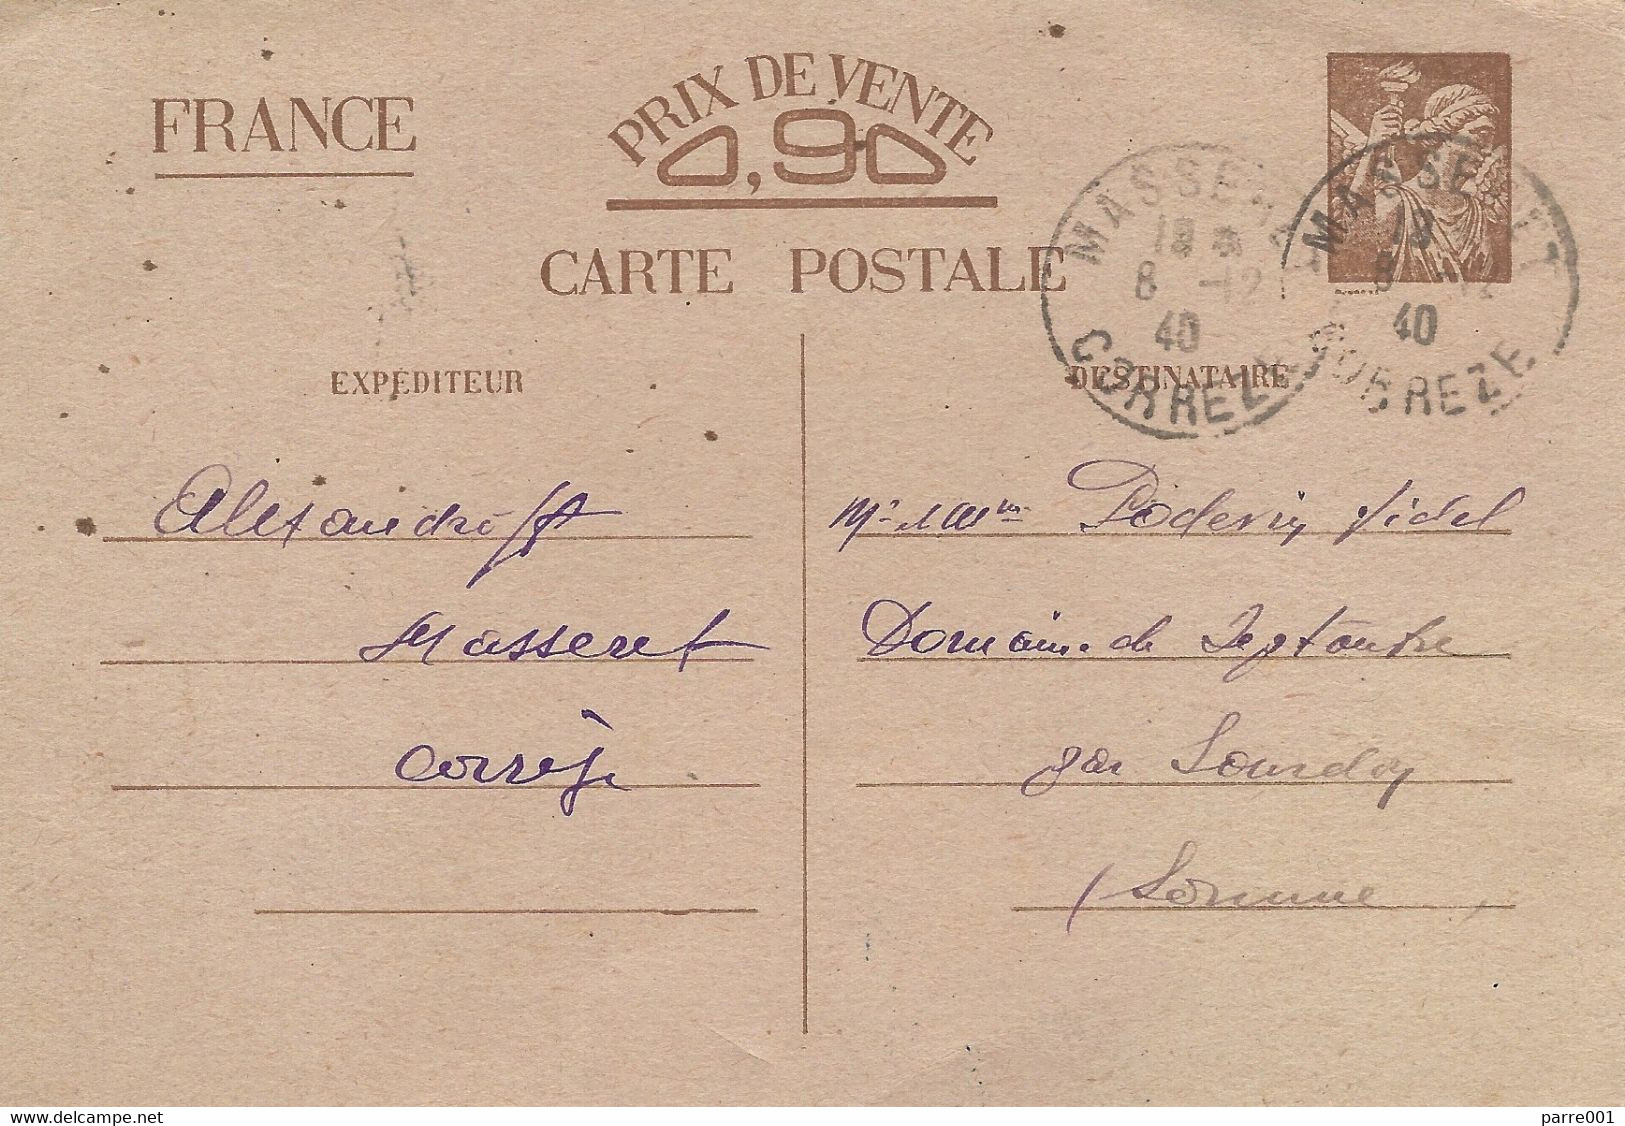 FRANCE
PRIX DE VENTE
0,90
CARTE POSTALE
MASSERET
18
8 -12
40
CORREZE
MASSERET
18
8 -12
40
CORREZE
EXPÉDITEUR
Alexandroff
Masseret
Corrèze
DESTINATAIRE
Mr & Mme Poderin Vidal
Domaine de Septoutre
par Sourdon
(Somme)
delcampe.net
parre001